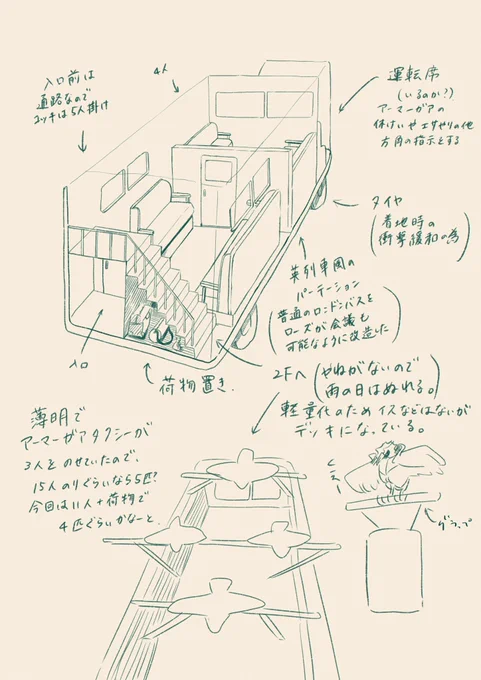 入口前は
通路なので
コッチは5人掛け
4人
運転席
(いるのか?)
アーマーガアの
休けいやエサやりの他
方角の指示とする
タイヤ
着地時の
衝撃緩和の為
英列車風の
パーテーション
普通のロンドンバスを
ローズが会議も
可能なように改造した
入口
荷物置き
2Fへ
やねがないので
雨の日はぬれる。
軽量化のためイスなどはないが
デッキになっている。
薄明で
アーマーガアタクシーが
3人とのせていたので、
15人のりぐらいなら5匹?
今回は11人+荷物で
4匹ぐらいかなーと、
グラップ